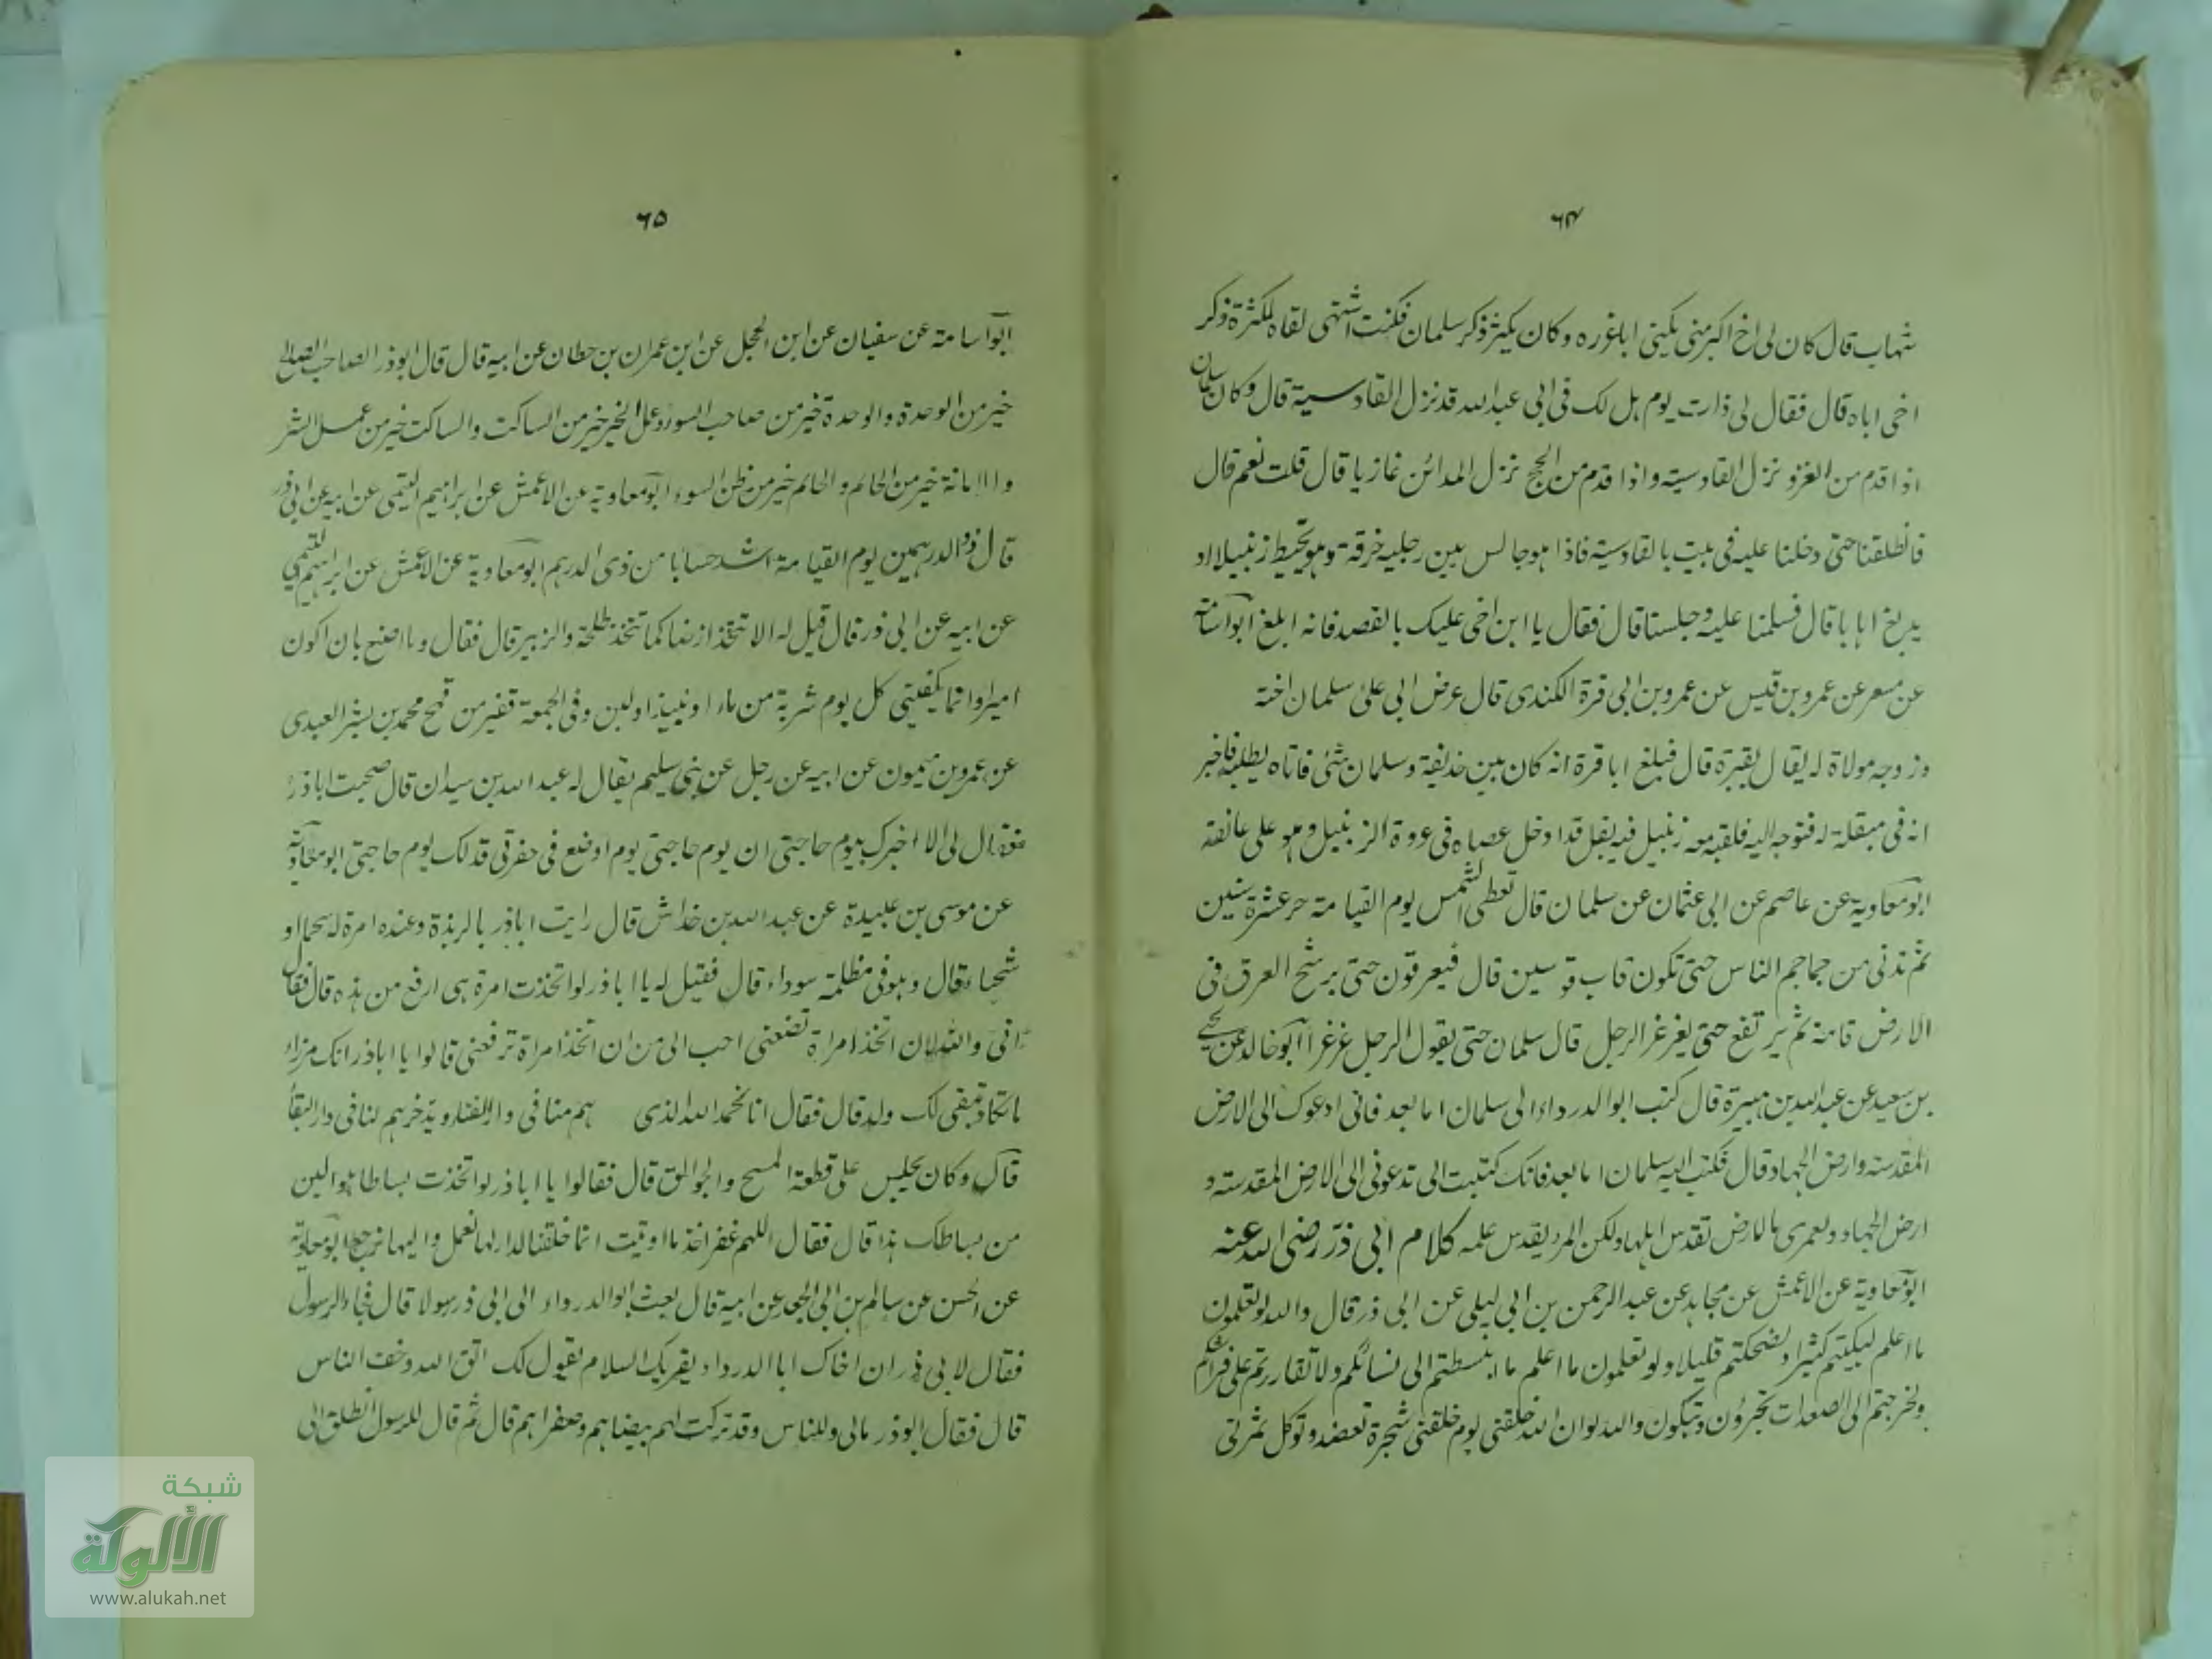 ٦٤
شهاب قال كان لى اخ اكبر منى يكينى اباغوره وكان يكيثر ذكر سلمان فكنت اشتهى لقاه لكثرة ذكر
اخى اباه قال فقال لى ذات يوم هل لك فى ابى عبدالله قد نزل القادسية قال وكان سلمان
اذا قدم من الغزو نزل القادسية واذا قدم من الحج نزل المدائن غازيا قال قلت نعم قال
فانطلقنا حتى دخلنا عليه فى بيت بالقادسية فاذا هو جالس بين رجليه خرقة وهو يخيط زنبيلا او
يدبغ اهابا قال فسلمنا عليه وجلسنا قال فقال يا ابن اخى عليك بالقصد فانه ابلغ ابو اسامة
عن مسعر عن عمرو بن قيس عن عمرو بن ابى قرة الكندى قال عرض ابى على سلمان اخته
وزوجه مولاة له يقال بقيرة قال فبلغ اباقرة انه كان بين حذيفة وسلمان شئ فاتاه يطلبه فاخبر
انه فى مبقلة له فتوجه اليه فلقيه معه زنبيل فيه بقل قد ادخل عصاه فى عروة الزنبيل وهو على عاتقه
ابو معاوية عن عاصم عن ابى عثمان عن سلمان قال تعطى الشمس يوم القيامة حر عشرة سنين
ثم تدنى من جماجم الناس حتى تكون قاب قوسين قال فيعرقون حتى يرشح العرق فى
الارض قامة ثم يرتفع حتى يغرغر الرجل قال سلمان حتى يقول الرجل غرغرا ابو خالد عن يحيى
بن سعيد عن عبدالله بن هبيرة قال كتب ابو الدرداء الى سلمان اما بعد فانى ادعوك الى الارض
المقدسة وارض الجهاد قال فكتب اليه سلمان اما بعد فانك كتبت الى تدعونى الى الارض المقدسة و
ارض الجهاد ولعمرى ما الارض تقدس اهلها ولكن المرء يقدس علمه كلام ابى ذر رضى الله عنه
ابو معاوية عن الاعمش عن مجاهد عن عبدالرحمن بن ابى ليلى عن ابى ذر قال والله لو تعلمون
ما اعلم لبكيتم كثيرا ولضحكتم قليلا ولو تعلمون ما اعلم ما انبسطتم الى نسائكم ولا تقاررتم على فراشكم
ولخرجتم الى الصعدات تجئرون وتبكون والله لو ان الله خلقنى يوم خلقنى شجرة تعضد وتوكل ثمرتى
٦٥
ابو اسامة عن سفيان عن ابن الحجل عن ابن عمران بن حطان عن ابيه قال قال ابو ذر الصاحب الصالح
خير من الوحدة والوحدة خير من صاحب السوء وعمل الخير خير من الساكت والساكت خير من عمل الشر
والامانة خير من الخاتم والخاتم خير من ظن السوء ابو معاوية عن الاعمش عن ابراهيم التيمى عن ابيه عن ابى ذر
قال ذو الدرهمين يوم القيامة اشد حسابا من ذى الدرهم ابو معاوية عن الاعمش عن ابراهيم التيمى
عن ابيه عن ابى ذر قال قيل له الا تتخذ ارضا كما تتخذ طلحة والزبير قال فقال وما اصنع بان اكون
اميرا وانما يكفينى كل يوم شربة من ماء او نبيذ او لبن وفى الجمعة قفيز من قمح محمد بن بشر العبدى
عن عمرو بن ميمون عن ابيه عن رجل عن بنى سليم يقال له عبدالله بن سيدان قال صحبت اباذر
فقال لى الا اخبرك بيوم حاجتى ان يوم حاجتى يوم اوضع فى حفرتى فذلك يوم حاجتى ابو معاوية
عن موسى بن عبيدة عن عبدالله بن خداش قال رايت اباذر بالربذة وعنده امرة له سحماء او
شحباء قال وهو فى مظلة سوداء قال فقيل له يا اباذر لو اتخذت امرة هى ارفع من هذه قال فقال
انى والله لان اتخذ امراة تضعنى احب الى من ان اتخذ امراة ترفعنى قالوا يا اباذر انك امرء
ما تكاد يبقى لك ولد قال فقال انا نحمد الله الذى هم منا فى دار الفناء ويدخرهم لنا فى دار البقاء
قال وكان يجلس على قطعة المسح والجوالق قال فقالوا يا اباذر لو اتخذت بساطا هو الين
من بساطك هذا قال فقال اللهم غفرا خذ ما اوتيت انما خلقنا لدار لها نعمل واليها نرجع ابو معاوية
عن الحسن عن سالم بن ابى الجعد عن ابيه قال بعث ابو الدرداء الى ابى ذر رسولا قال فجاء الرسول
فقال لابى ذر ان اخاك ابا الدرداء يقريك السلام يقول لك اتق الله وخف الناس
قال فقال ابو ذر مالى وللناس وقد تركت لهم بيضاهم وصفراهم قال ثم قال للرسول انطلق الى
شبكة
الألوكة
www.alukah.net